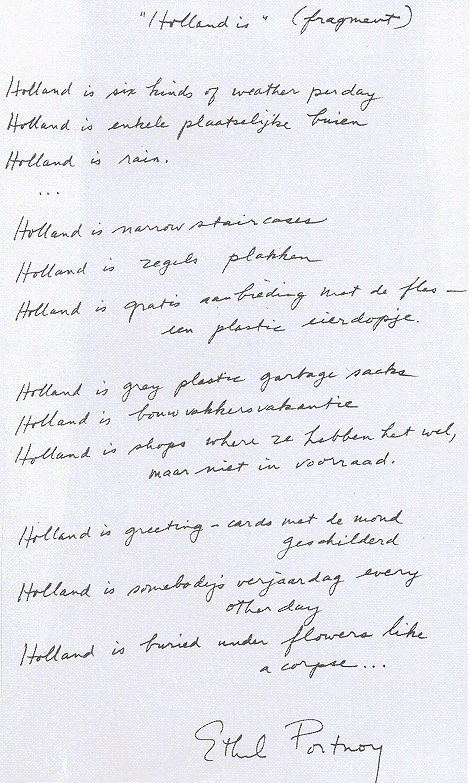 "Holland is" (fragment)
Holland is six kinds of weather per day
Holland is enkele plaatselijke buien
Holland is rain.
...
Holland is narrow staircases
Holland is zegels plakken
Holland is gratis aanbieding met de fles —
een plastic eierdopje.
Holland is grey plastic garbage sacks
Holland is bouwvakkersvakantie
Holland is shops where ze hebben het wel,
maar niet in voorraad.
Holland is greeting-cards met de mond
geschilderd
Holland is somebody's verjaardag every
other day
Holland is buried under flowers like
a corpse...
Ethel Portnoy